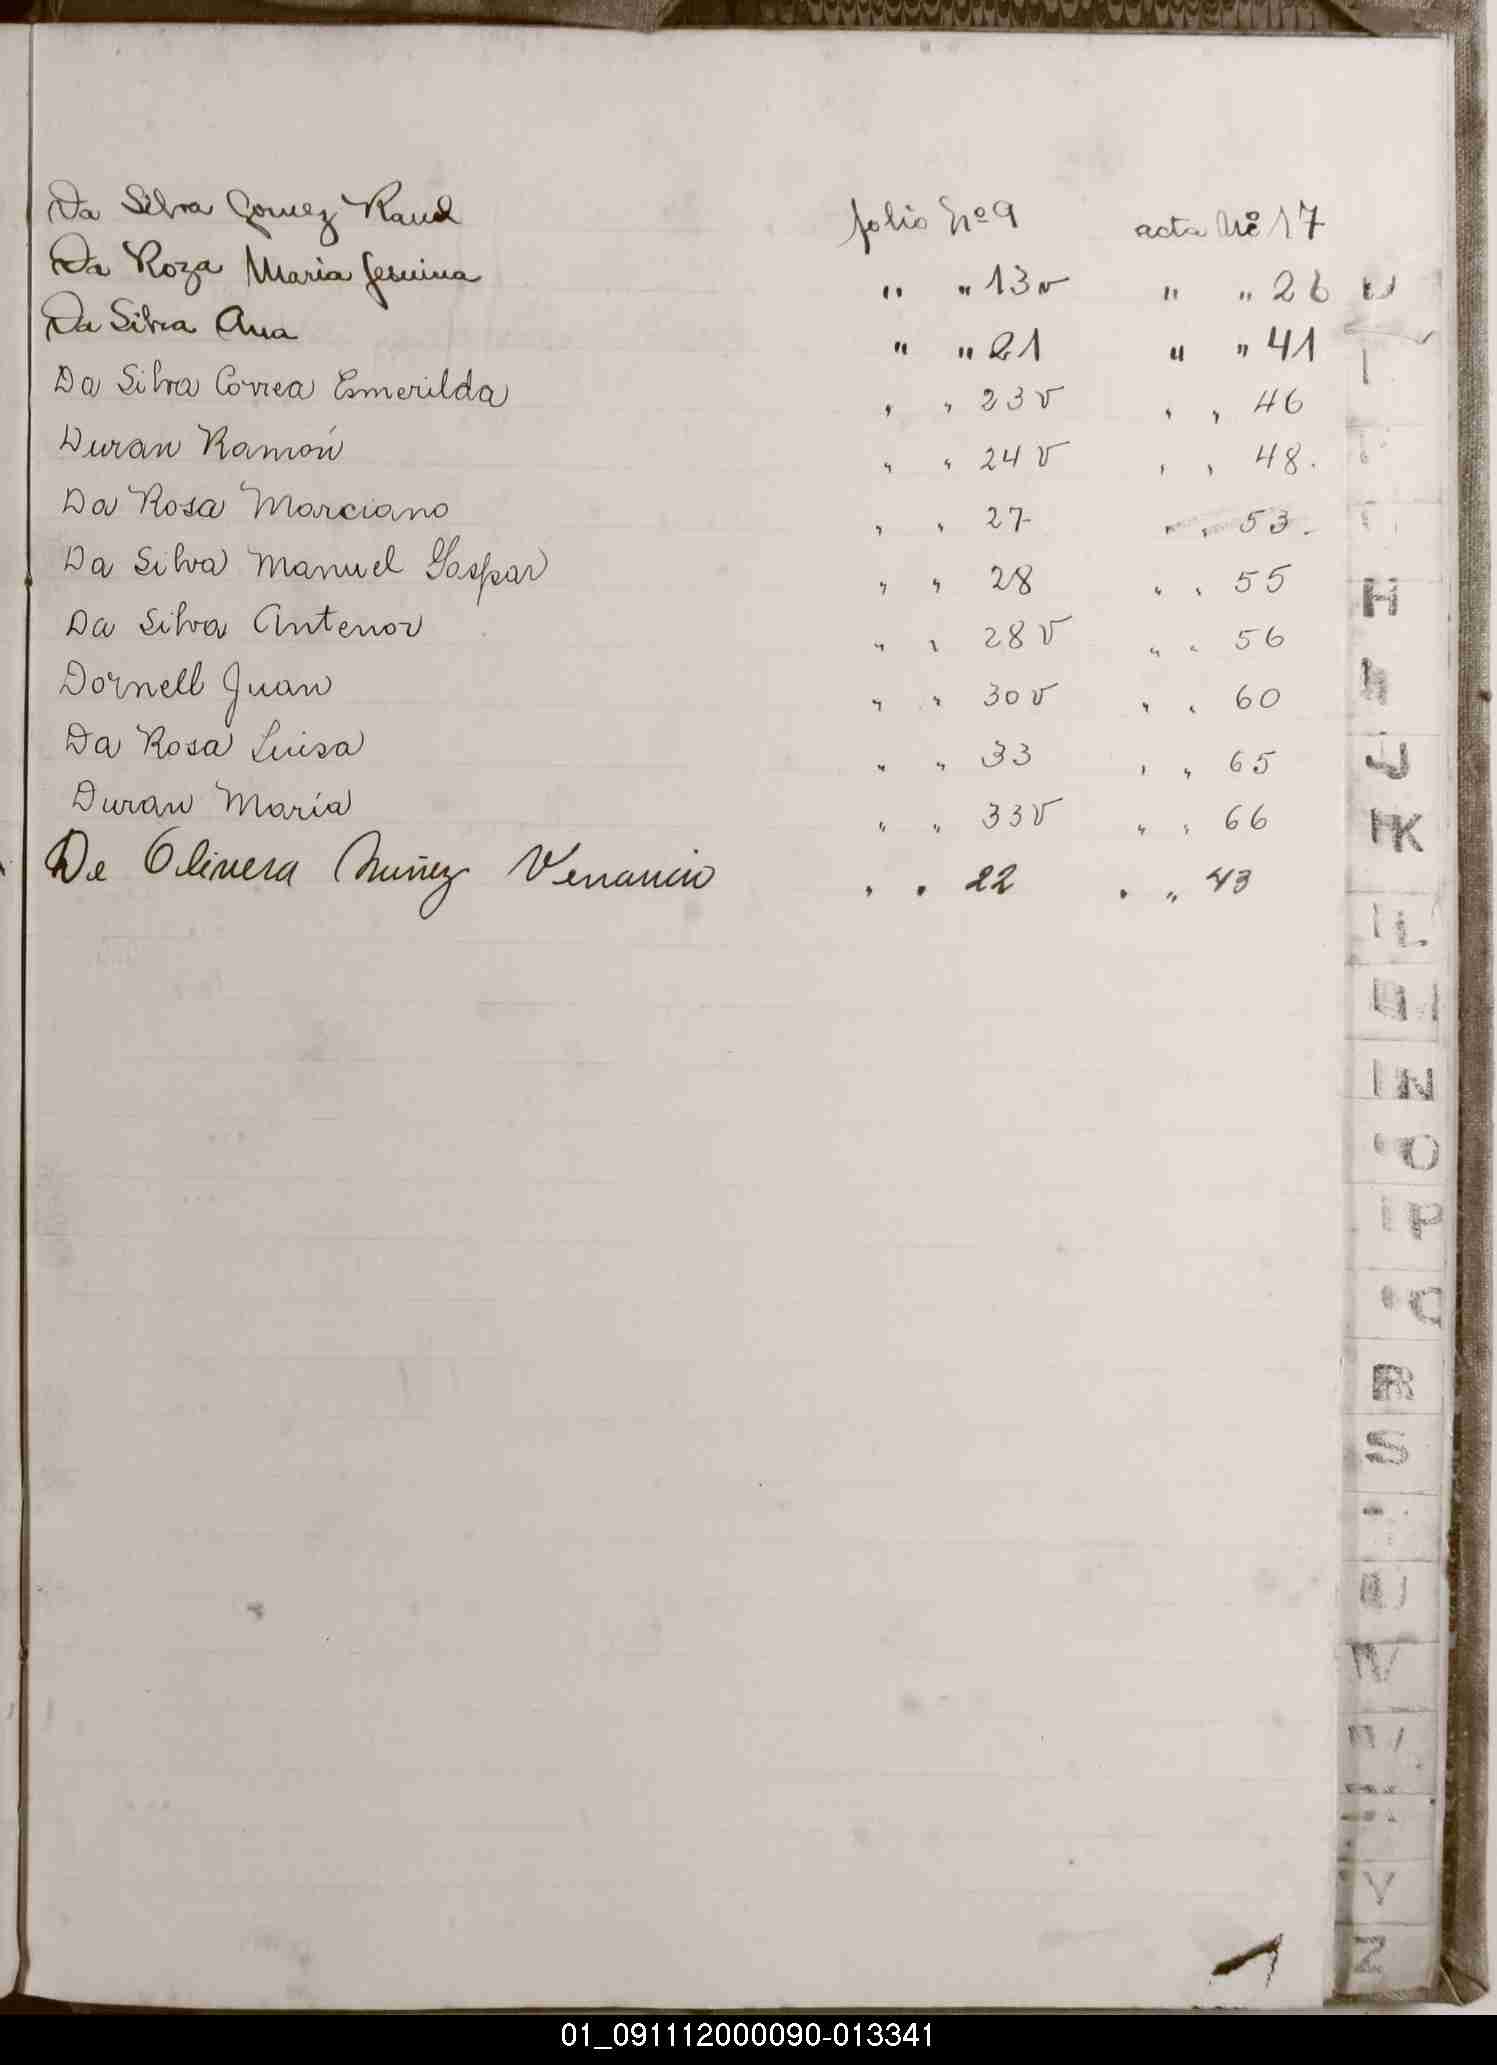 Da Silva Gomez Raul folio Nº 9 acta Nº 17
Da Roza Maria Jesuina " " 13v " " 26
Da Silva Ana " " 21 " " 41
Da Silva Correa Esmerilda " " 23v " " 46
Duran Ramón " " 24v " " 48.
Da Rosa Marciano " " 27 " " 53.
Da Silva Manuel Gaspar " " 28 " " 55
Da Silva Antenor " " 28v " " 56
Dornell Juan " " 30v " " 60
Da Rosa Luisa " " 33 " " 65
Duran María " " 33v " " 66
De Olivera Nuñez Venancio " " 22 " " 43
H
J
K
N
O
P
R
S
V
Y
Z
01_091112000090-013341